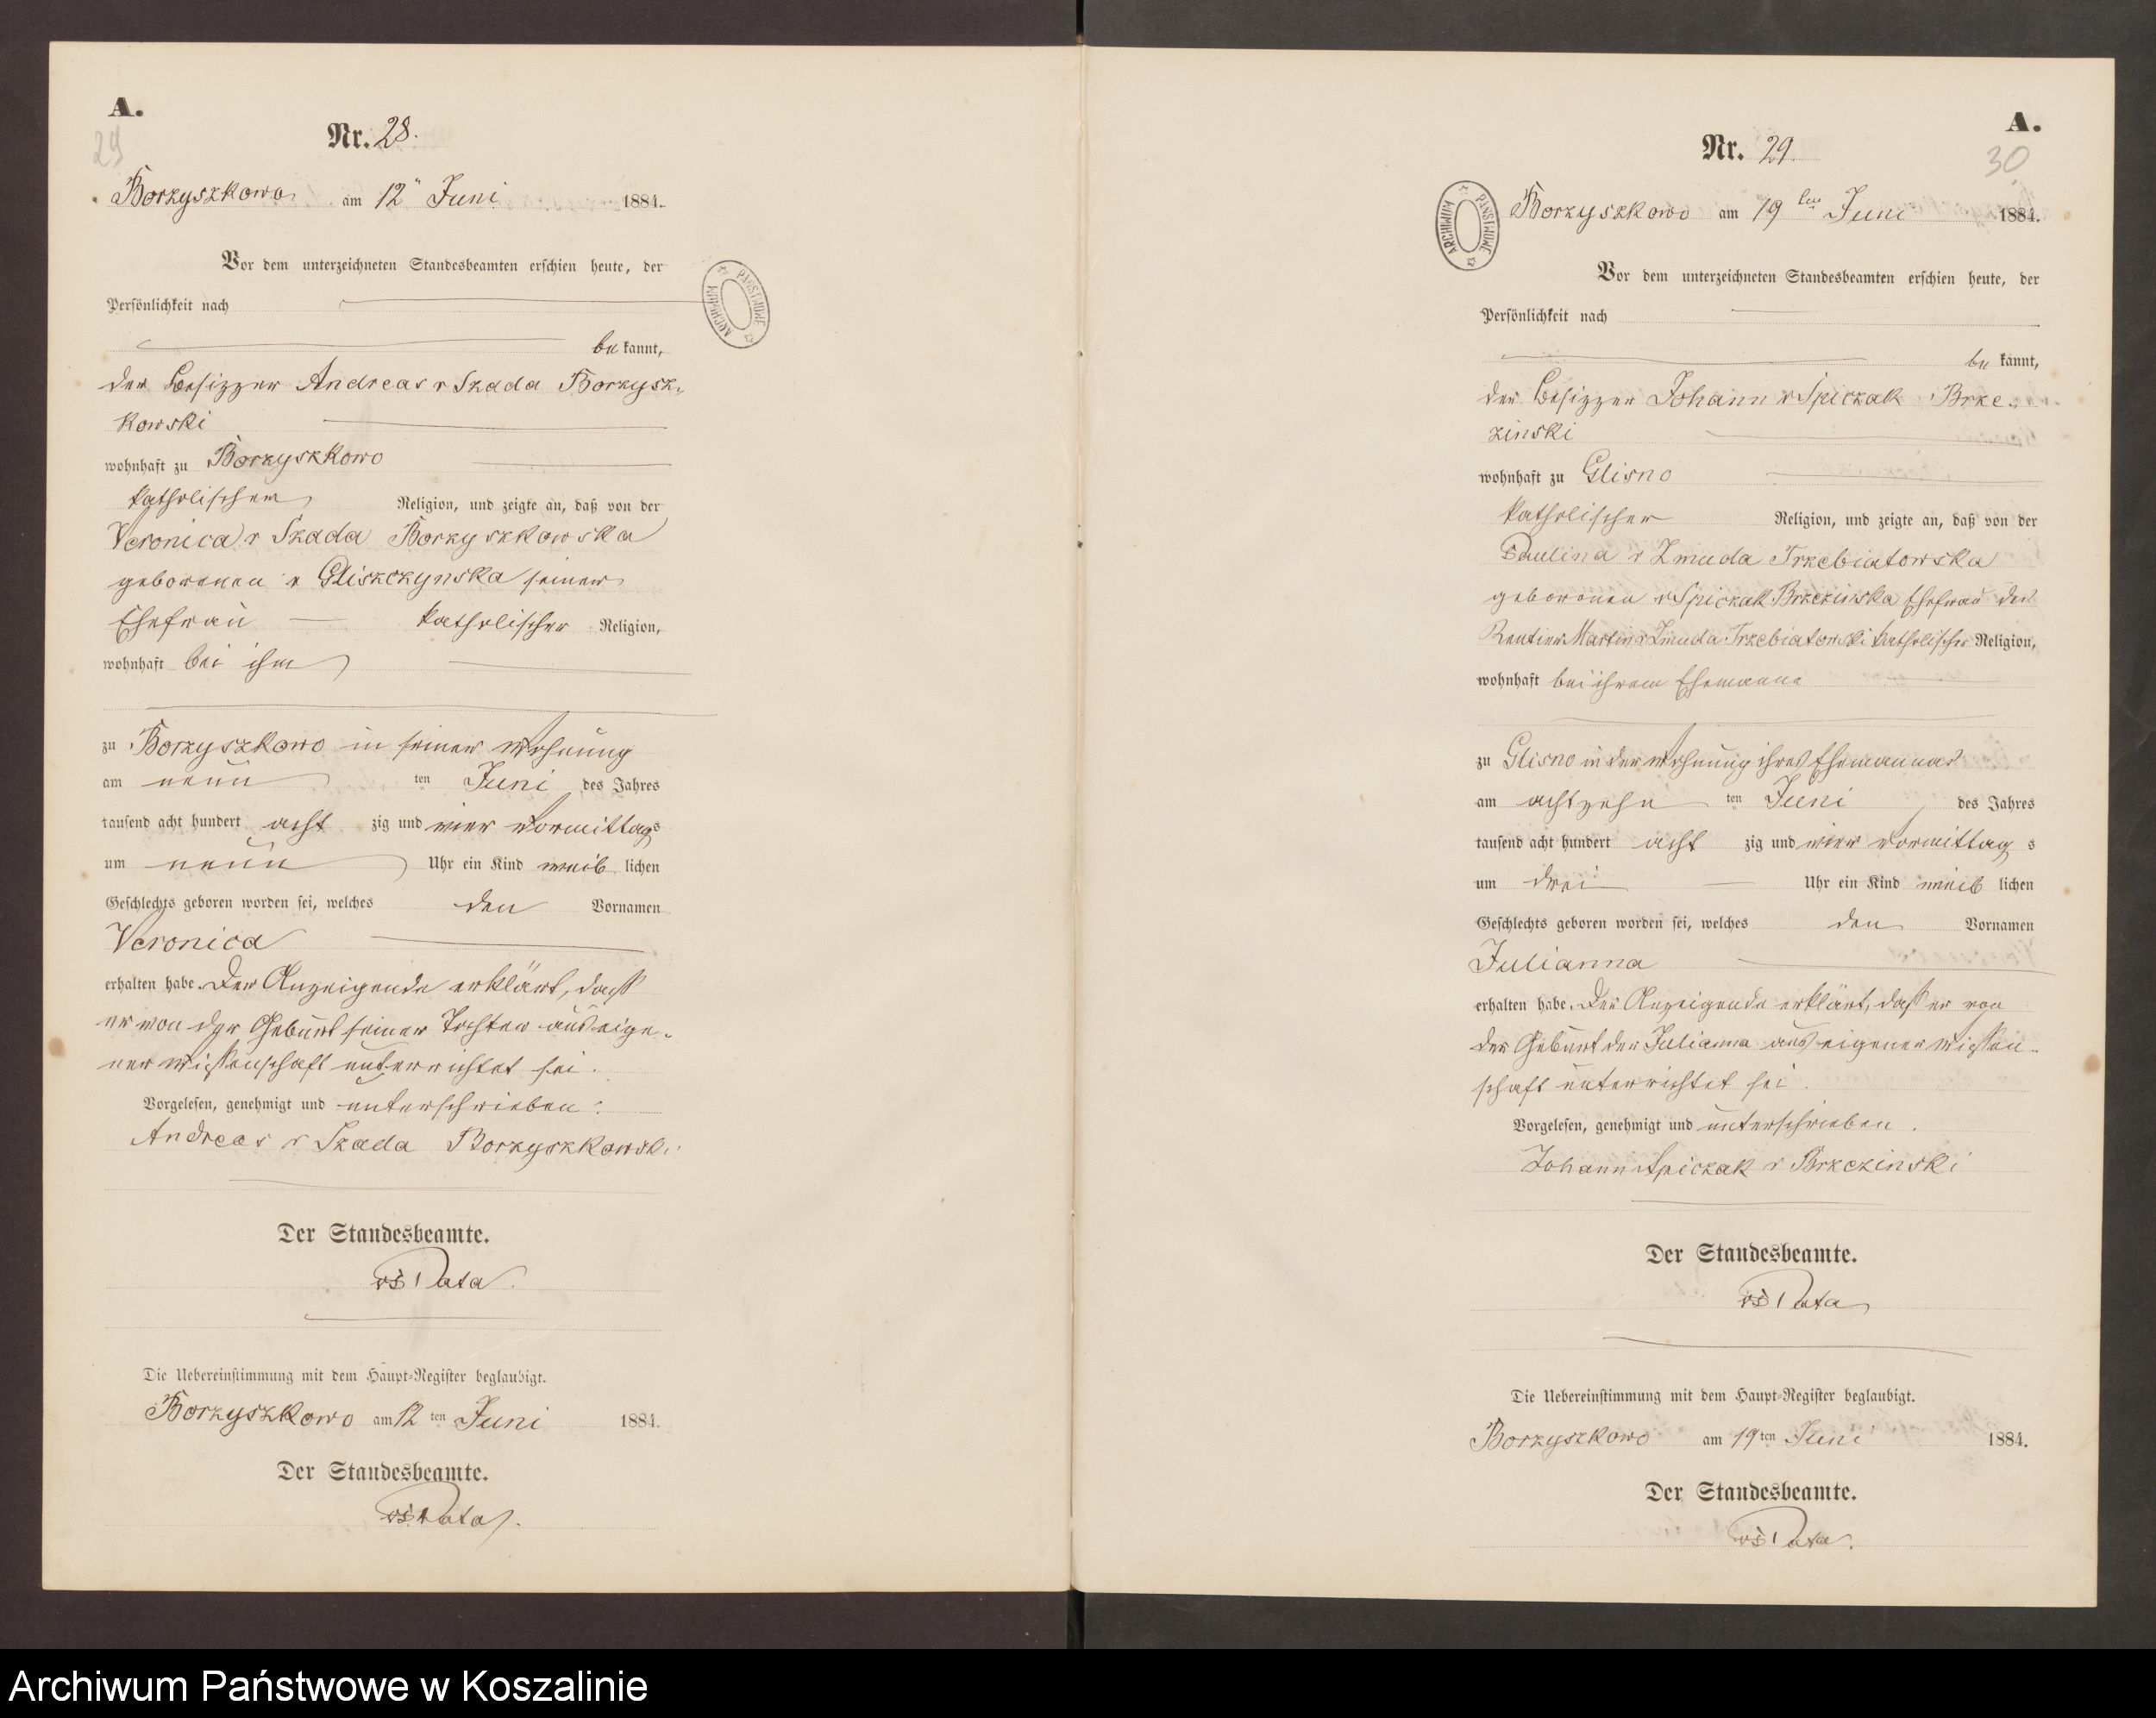 A.
29
Nr. 28.
Borzyszkowo am 12" Juni 1884.
Vor dem unterzeichneten Standesbeamten erschien heute, der
Persönlichkeit nach
be kannt,
der Besitzer Andreas v Skada Borzysz-
kowski
wohnhaft zu Borzyszkowo
katholischer Religion, und zeigte an, daß von der
Veronica v Skada Borzyszkowska
geborenen v Gliszczynska seiner
Ehefrau katholischer Religion,
wohnhaft bei ihm
zu Borzyszkowo in seiner Wohnung
am neun ten Juni des Jahres
tausend acht hundert acht zig und vier Vormittags
um neun Uhr ein Kind weib lichen
Geschlechts geboren worden sei, welches den Vornamen
Veronica
erhalten habe. Der Anzeigende erklärt, dass
er von der Geburt seiner Tochter aus eige-
ner Wissenschaft unterrichtet sei.
Vorgelesen, genehmigt und unterschrieben.
Andreas v Skada Borzyszkowski
Der Standesbeamte.
Pata
Die Uebereinstimmung mit dem Haupt-Register beglaubigt.
Borzyszkowo am 12 ten Juni 1884.
Der Standesbeamte.
Pata.
A.
30
Nr. 29.
ARCHIWUM PAŃSTWOWE
Borzyszkowo am 19 ten Juni 1884.
Vor dem unterzeichneten Standesbeamten erschien heute, der
Persönlichkeit nach
be kannt,
der Besitzer Johann v Spiczak Brze-
zinski
wohnhaft zu Glisno
katholischer Religion, und zeigte an, daß von der
Paulina v Zmuda Trzebiatowska
geborenen v Spiczak Brzezinska Ehefrau des
Rentier Martin v Zmuda Trzebiatowski katholischer Religion,
wohnhaft bei ihrem Ehemanne
zu Glisno in der Wohnung ihres Ehemannes
am achtzehn ten Juni des Jahres
tausend acht hundert acht zig und vier Vormittag s
um drei Uhr ein Kind weib lichen
Geschlechts geboren worden sei, welches den Vornamen
Julianna
erhalten habe. Der Anzeigende erklärt, daß er von
der Geburt der Julianna aus eigener Wissen-
schaft unterrichtet sei.
Vorgelesen, genehmigt und unterschrieben.
Johann Spiczak v Brzezinski
Der Standesbeamte.
Pata
Die Uebereinstimmung mit dem Haupt-Register beglaubigt.
Borzyszkowo am 19 ten Juni 1884.
Der Standesbeamte.
Pata.
ARCHIWUM PAŃSTWOWE
Archiwum Państwowe w Koszalinie